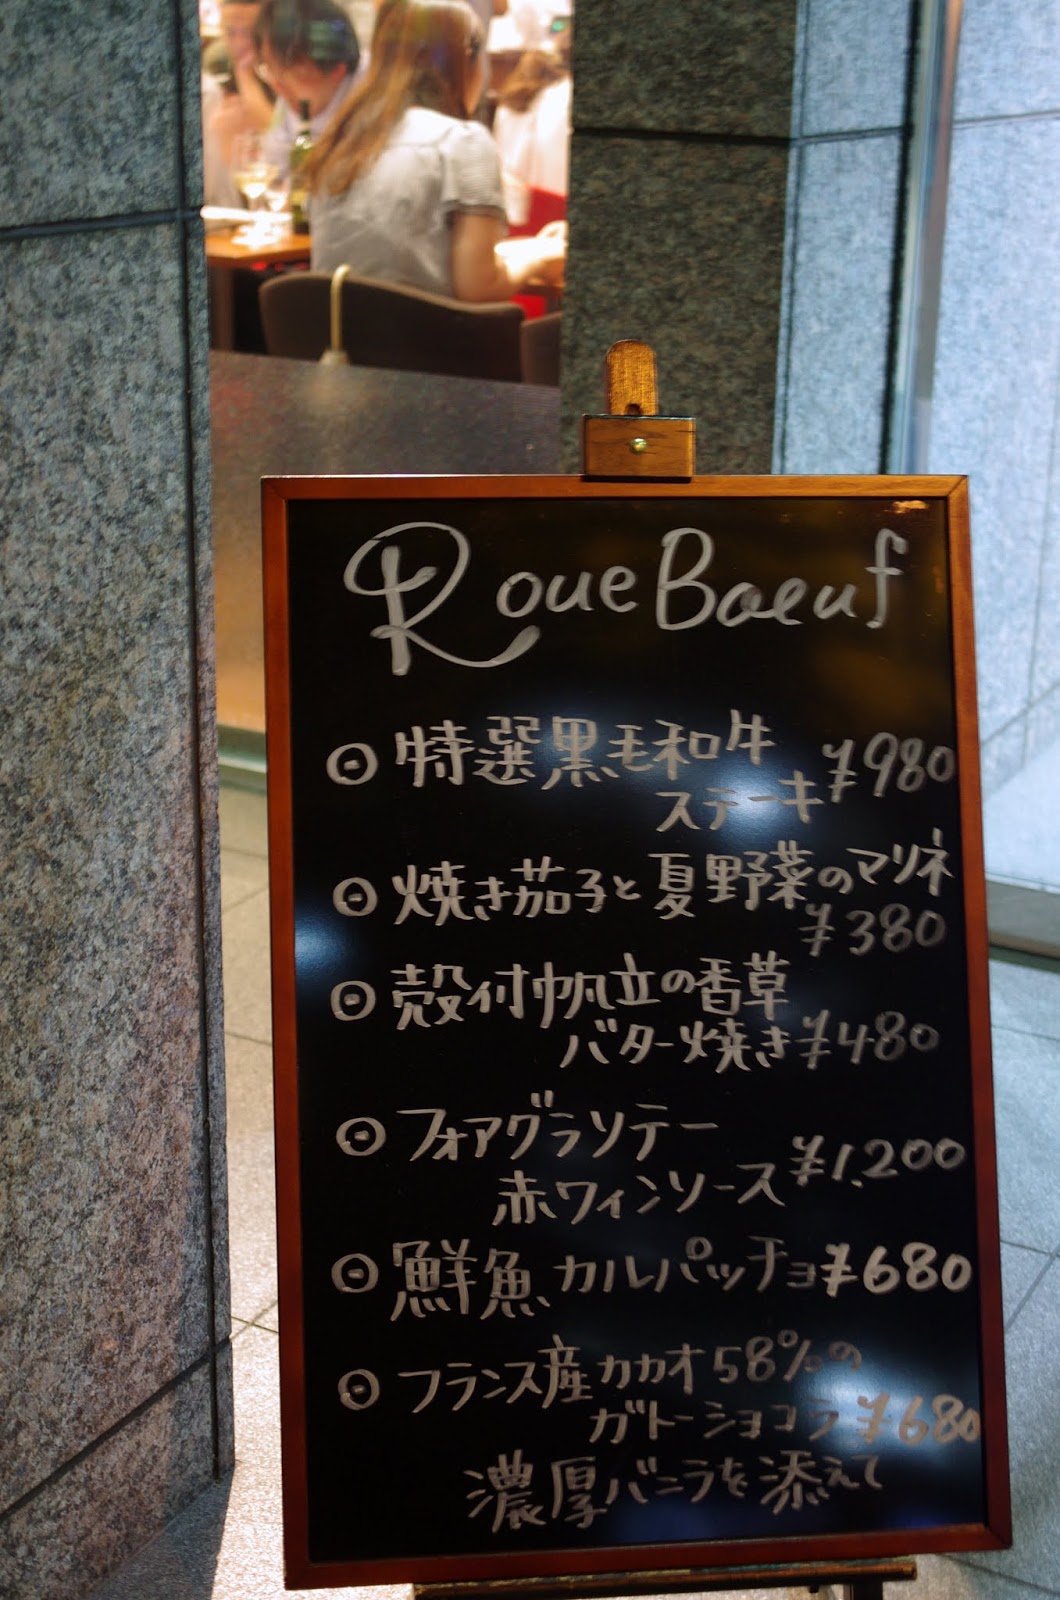 Roue Boeuf
⊙ 特選黒毛和牛
ステーキ ¥980
⊙ 焼き茄子と夏野菜のマリネ
¥380
⊙ 殻付帆立の香草
バター焼き ¥480
⊙ フォアグラソテー
赤ワインソース ¥1,200
⊙ 鮮魚カルパッチョ ¥680
⊙ フランス産カカオ58%の
ガトーショコラ ¥680
濃厚バニラを添えて